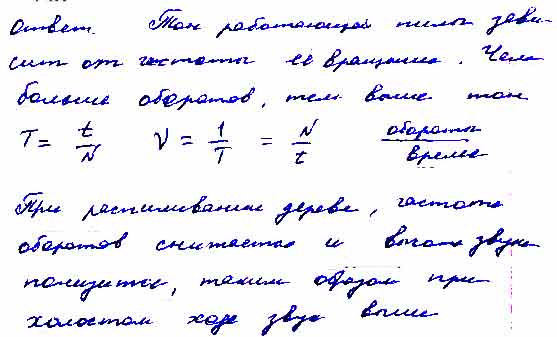 Ответ. Тон работающей пилы зави-
сит от частоты ее вращения. Чем
больше оборотов, тем выше тон
T = t/N ν = 1/T = N/t обороты/время
При распиливании дерева, частота
оборотов снижается и высота звука
понизится, таким образом при
холостом ходе звук выше